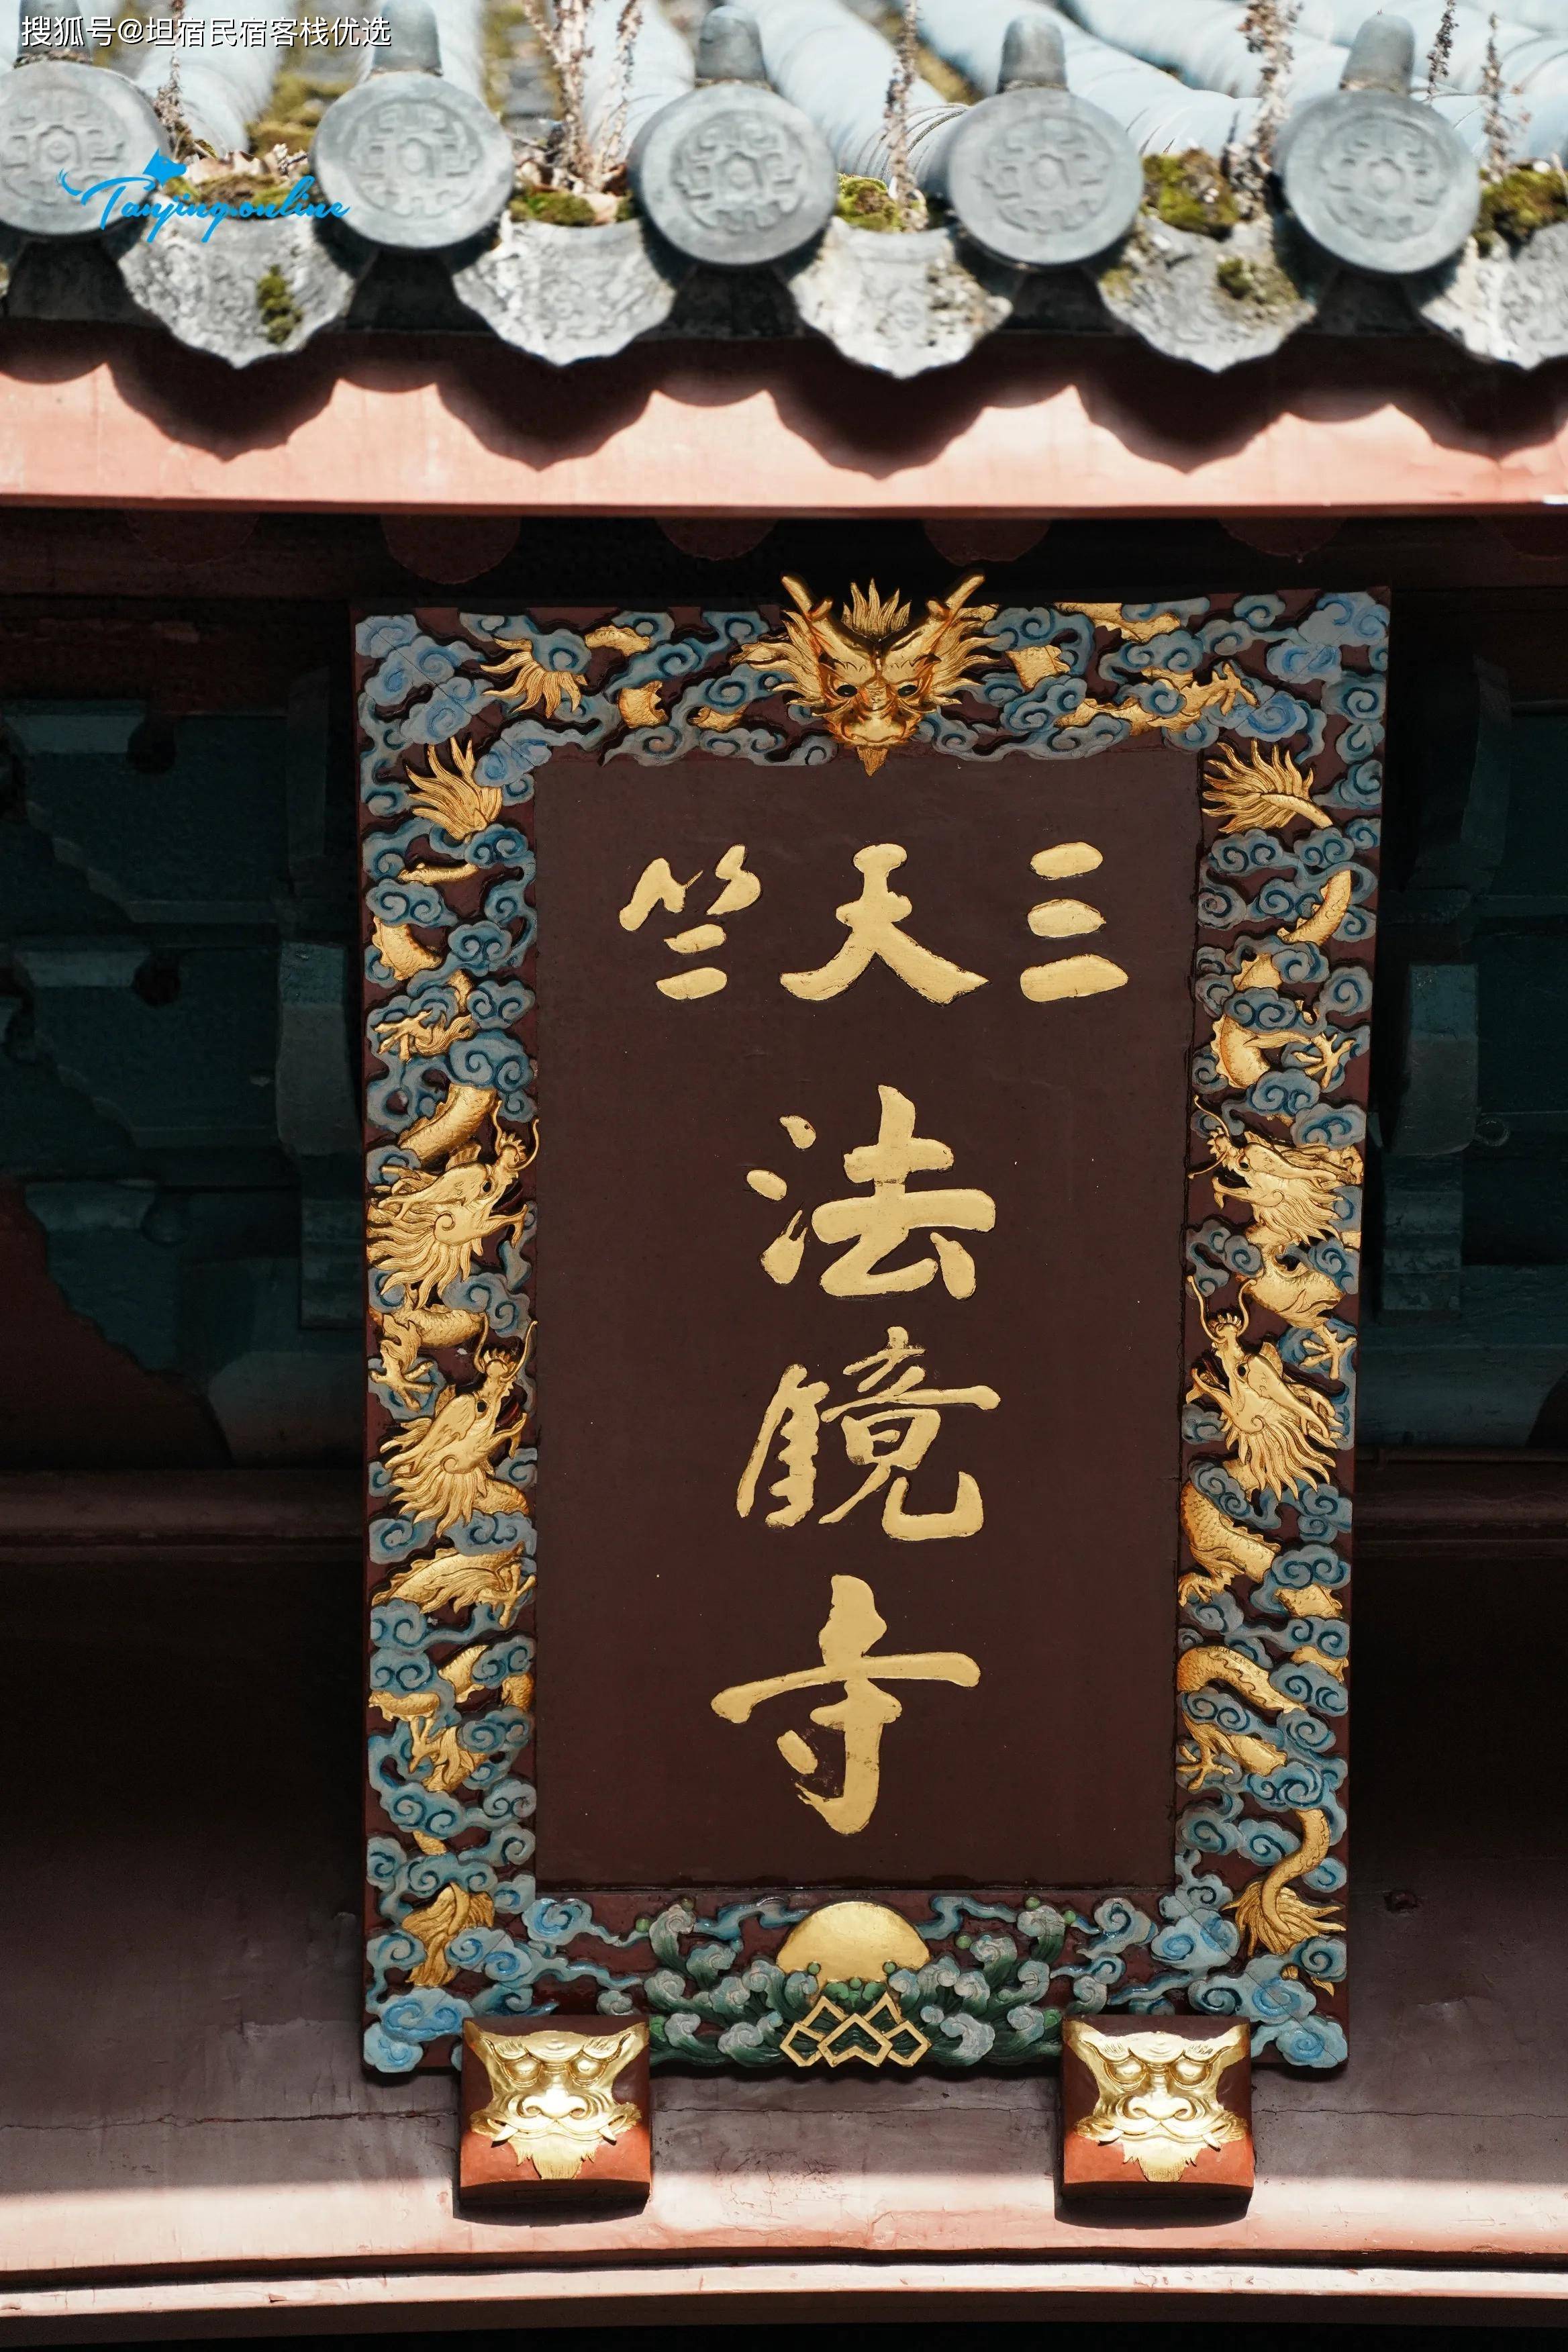 搜狐号@坦宿民宿客栈优选
Tanjing.online
三天竺
法鏡寺